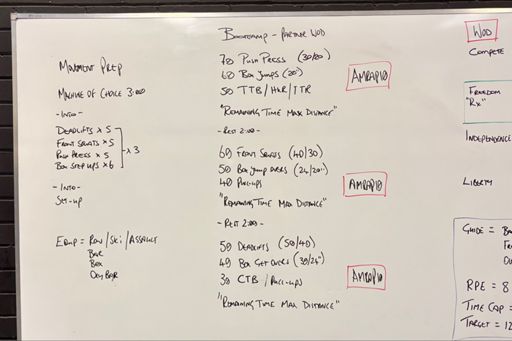 Movement Prep
Machine of Choice 3:00
- Into -
Deadlifts x 5
Front Squats x 5
Push Press x 5
Box Step Ups x 6
x 3
- Into -
Set-up
Equip = Row / Ski / Assault
Bar
Box
Bootcamp - Partner WOD
70 Push Press (30/20)
60 Box Jumps (20")
50 TTB / HKR /
AMRAP10
"Remaining Time Max Distance"
- Rest 2:00 -
60 Front Squats (40/30)
50 Box Jump Overs (24/20")
40 Pull-ups
AMRAP10
"Remaining Time Max Distance"
- Rest 2:00 -
50 Deadlifts (50/40)
40 Box Get Overs (30/24")
30 CTB / Pull-ups
AMRAP10
"Remaining Time Max Distance"
WOD
Compete
Freedom
"Rx"
Independence
Liberty
Guide =
RPE = 8
Time Cap =
Target = 12